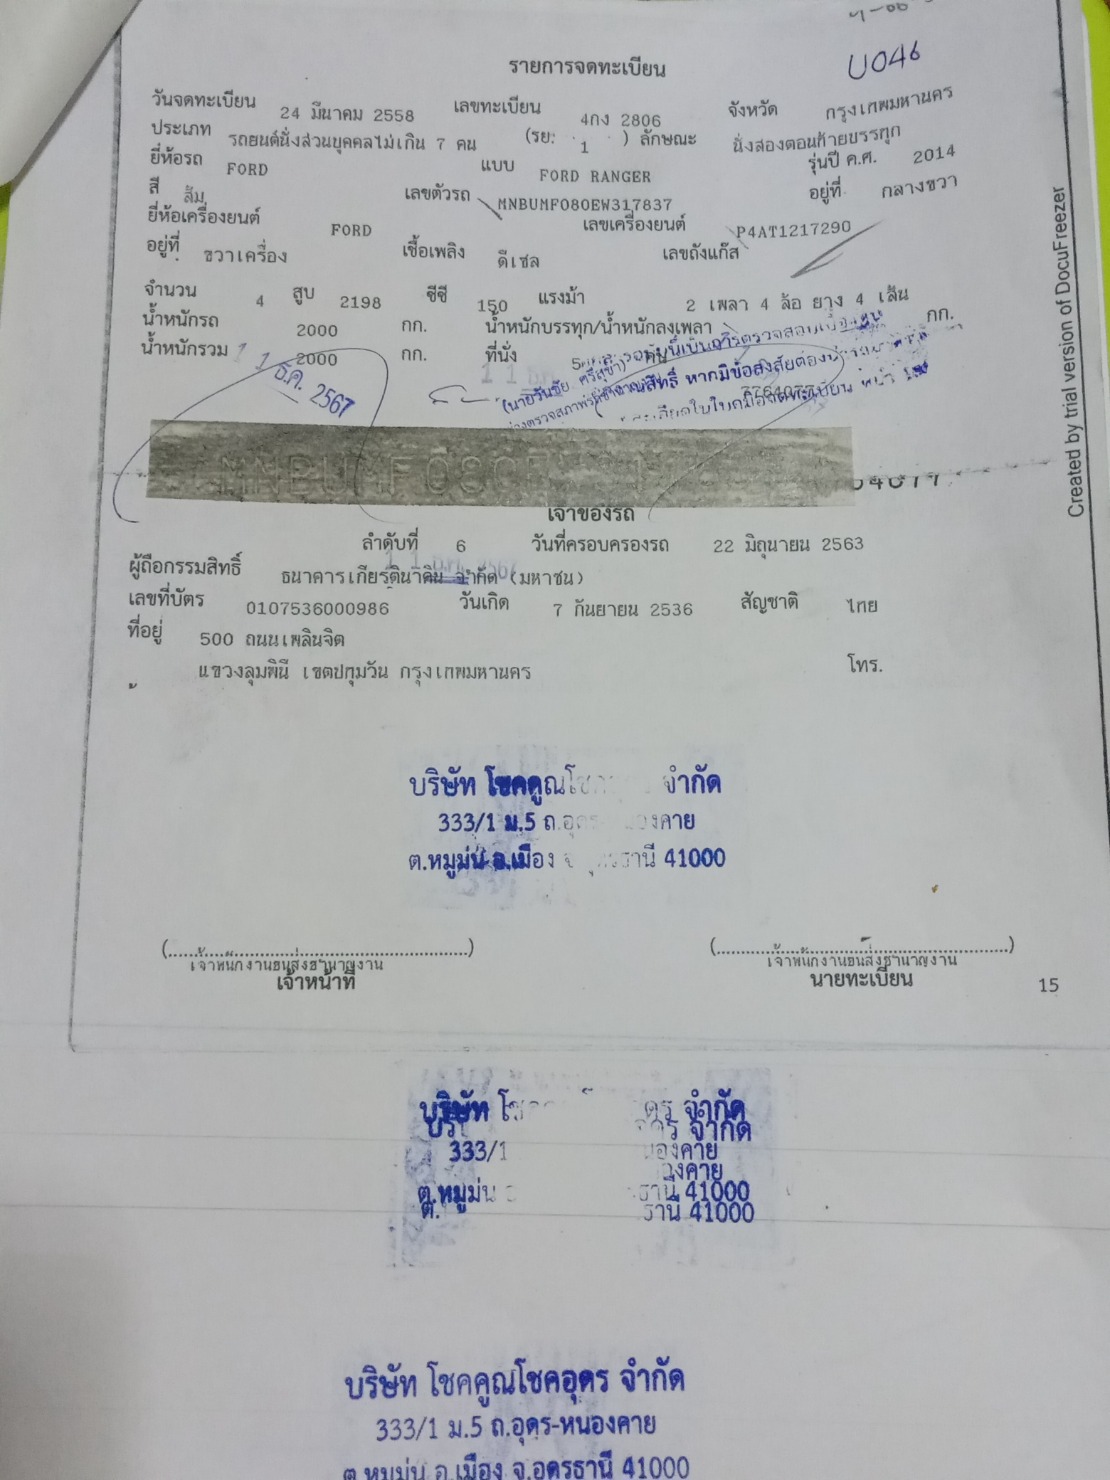 U046
รายการจดทะเบียน
วันจดทะเบียน 24 มีนาคม 2558 เลขทะเบียน 4กง 2806 จังหวัด กรุงเทพมหานคร
ประเภท รถยนต์นั่งส่วนบุคคลไม่เกิน 7 คน (รย. 1 ) ลักษณะ นั่งสองตอนท้ายบรรทุก
ยี่ห้อรถ FORD แบบ FORD RANGER รุ่นปี ค.ศ. 2014
สี ส้ม เลขตัวรถ MNBUMF080EW317837 อยู่ที่ กลางขวา
ยี่ห้อเครื่องยนต์ FORD เลขเครื่องยนต์ P4AT1217290
อยู่ที่ ขวาเครื่อง เชื้อเพลิง ดีเซล เลขถังแก๊ส
จำนวน 4 สูบ 2198 ซีซี 150 แรงม้า 2 เพลา 4 ล้อ ยาง 4 เส้น
น้ำหนักรถ 2000 กก. น้ำหนักบรรทุก/น้ำหนักลงเพลา กก.
น้ำหนักรวม 2000 กก. ที่นั่ง 5
11 ธ.ค. 2567
เจ้าของรถ
ลำดับที่ 6 วันที่ครอบครองรถ 22 มิถุนายน 2563
ผู้ถือกรรมสิทธิ์ ธนาคารเกียรตินาคิน จำกัด (มหาชน)
เลขที่บัตร 0107536000986 วันเกิด 7 กันยายน 2536 สัญชาติ ไทย
ที่อยู่ 500 ถนนเพลินจิต
แขวงลุมพินี เขตปทุมวัน กรุงเทพมหานคร โทร.
บริษัท โชคคูณโช จำกัด
333/1 ม.5 ถ.อุดร-หนองคาย
ต.หมูม่น อ.เมือง จ.อุดรธานี 41000
(........................................) (........................................)
เจ้าพนักงานขนส่งชำนาญงาน เจ้าพนักงานขนส่งชำนาญงาน
เจ้าหน้าที่ นายทะเบียน
15
Created by trial version of DocuFreezer
บริษัท โช ดร จำกัด
บริ ดร จำกัด
333/1 องคาย
องคาย
ต.หมูม่น ธานี 41000
ต. ธานี 41000
บริษัท โชคคูณโชคอุดร จำกัด
333/1 ม.5 ถ.อุดร-หนองคาย
ต.หมูม่น อ.เมือง จ.อุดรธานี 41000